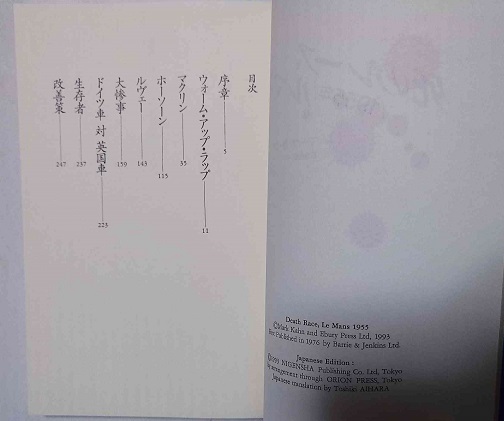 目次
序章 5
ウォーム・アップ・ラップ 11
マクリン 35
ホーソーン 115
ルヴェー 143
大惨事 159
ドイツ車 対 英国車 225
生存者 237
改善策 247
Death Race, Le Mans 1955
©Mark Kahn and Ebury Press Ltd, 1993
First Published in 1976 by Barrie & Jenkins Ltd.
Japanese Edition :
©1993 NIGENSHA Publishing Co. Ltd, Tokyo
arrangement through ORION PRESS, Tokyo
Japanese translation by Toshiki AIHARA